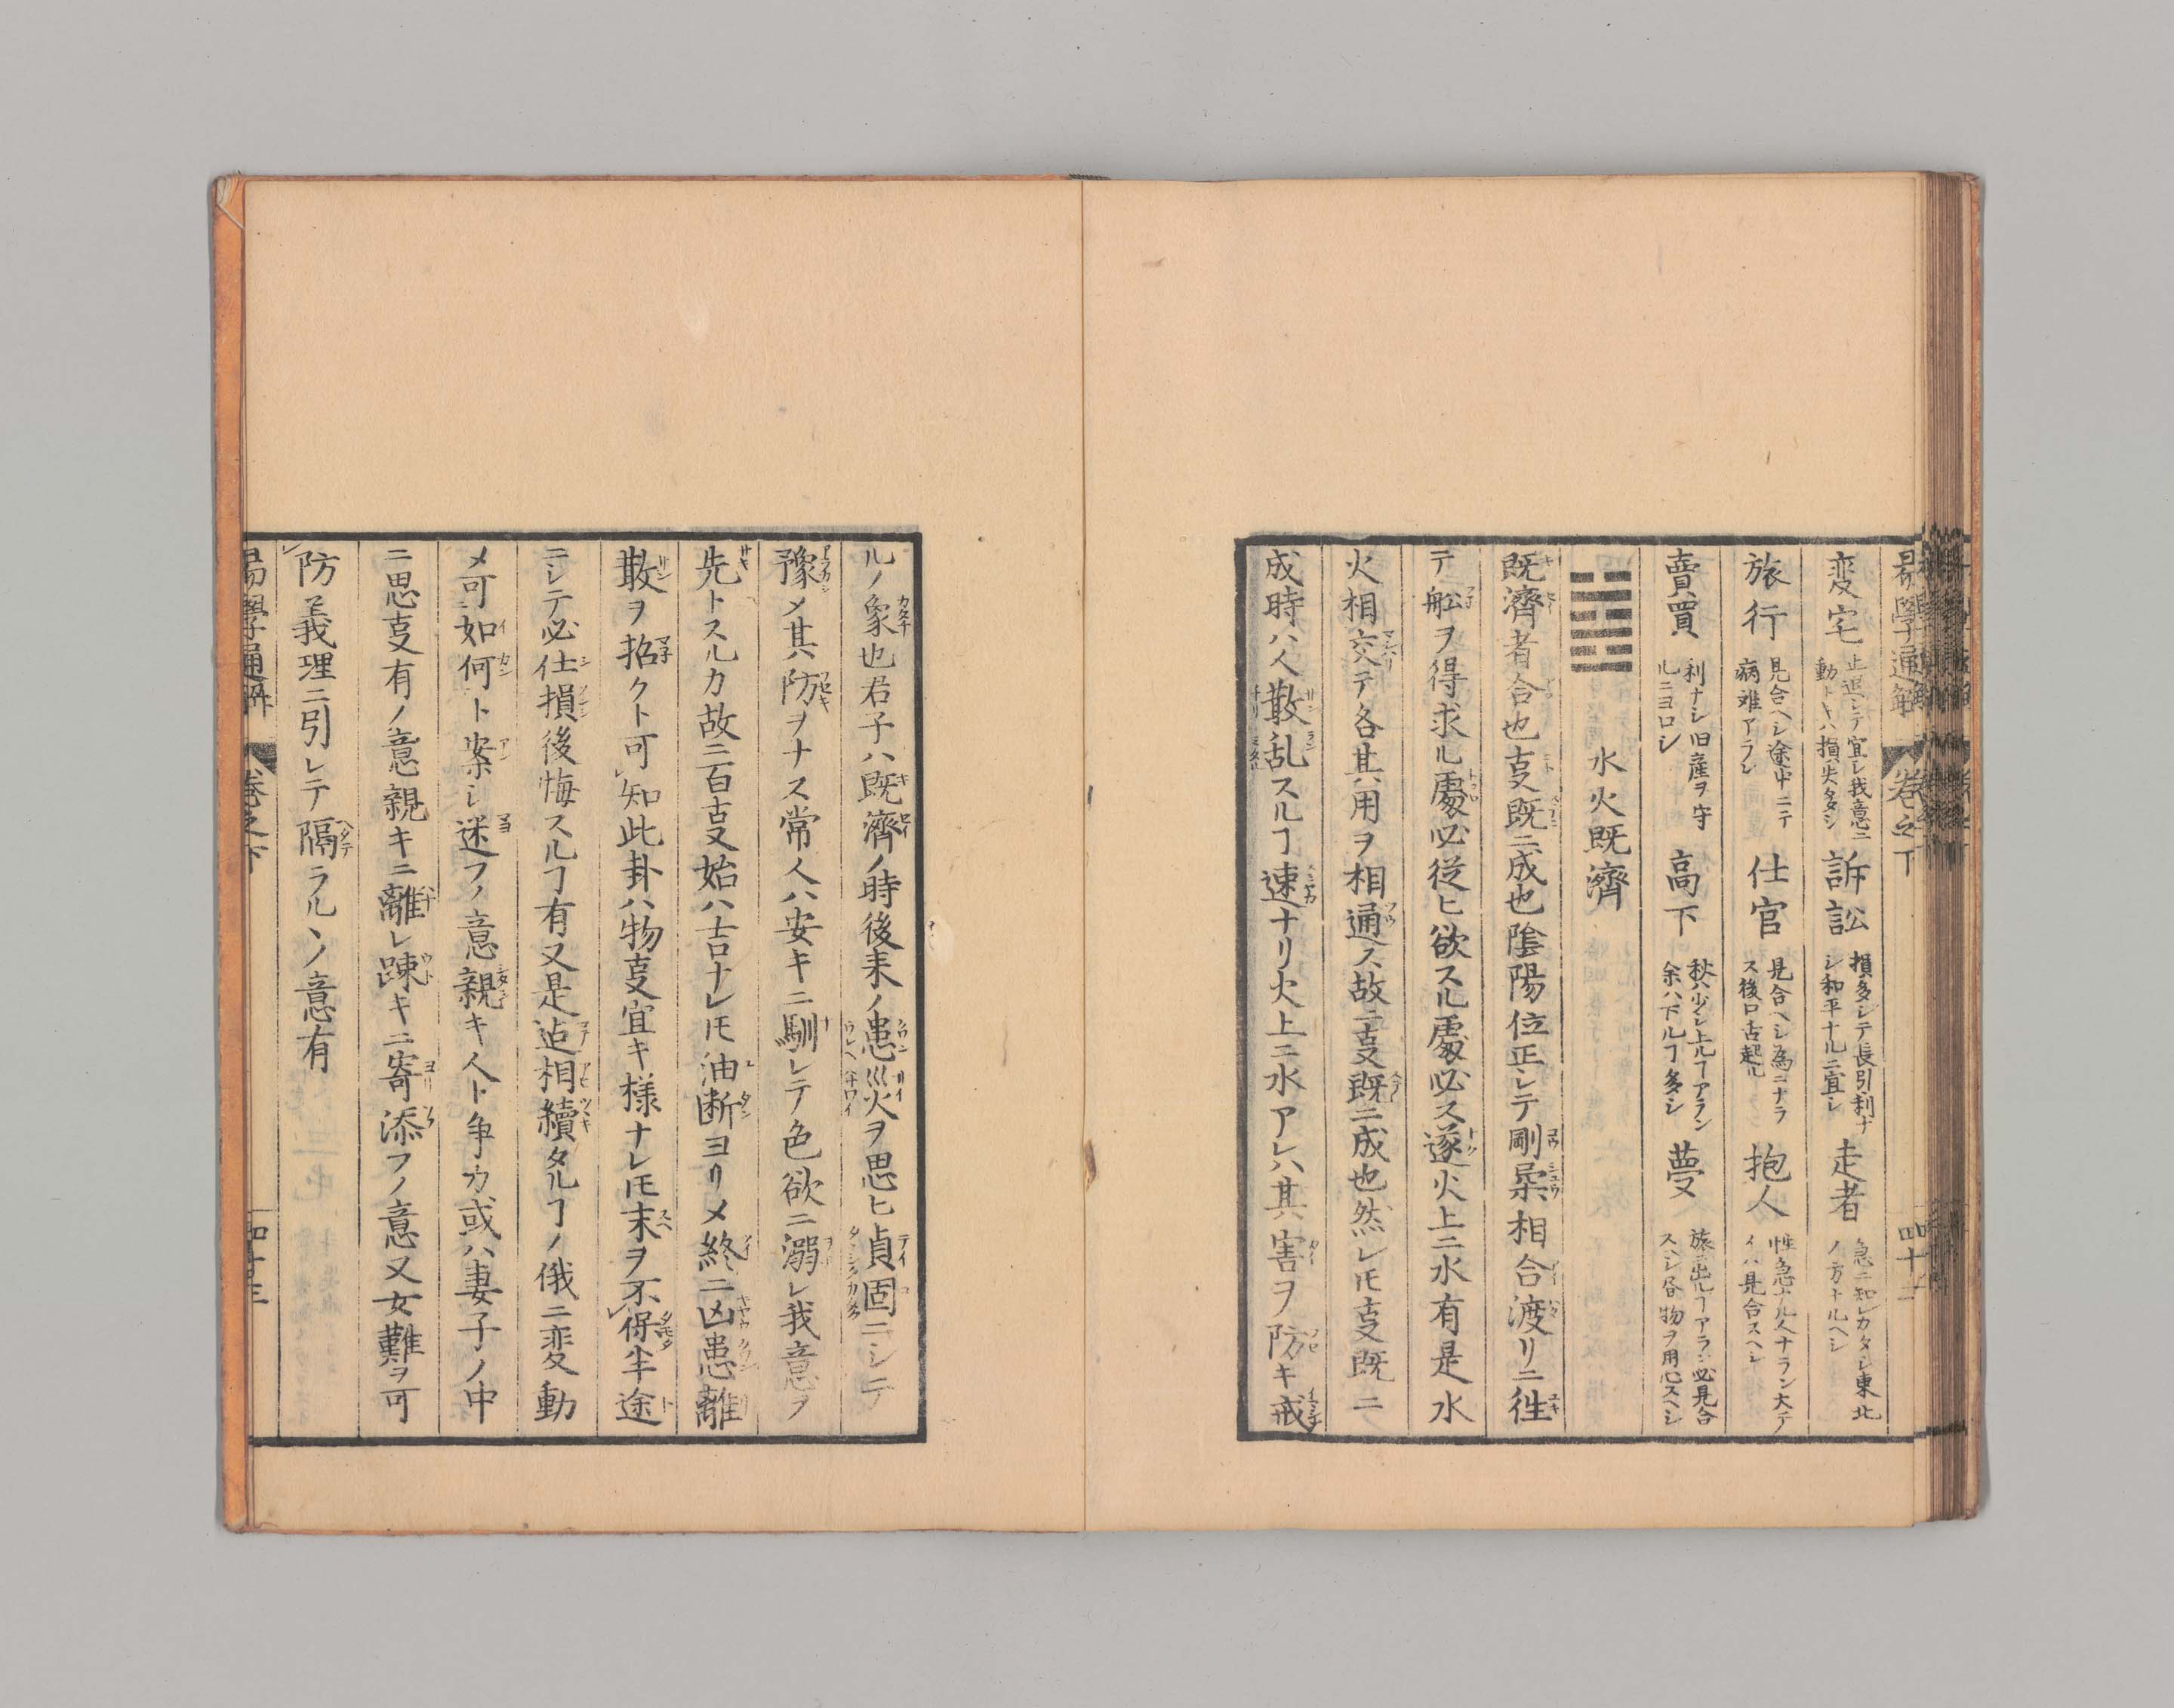 易學通解 卷之下 四十二
変宅 止退シテ宜シ我意ニ
動トキハ損失多シ
訴訟 損多シテ長引利ナ
シ和平ナルニ宜シ
走者 急ニ知レカタシ東北
ノ方ナルヘシ
旅行 見合ヘシ途中ニテ
病難アラン
仕官 見合ヘシ為ニナラ
ス後口舌起ル
抱人 性急ナル人ナラン大テ
イハ見合スヘシ
賣買 利ナシ旧産ヲ守
ルニヨロシ
高下 秋ハ少シ上ルヿアラン
余ハ下ルヿ多シ
夢 旅ニ出ルヿアラン必見合
スヘシ各物ヲ用心スヘシ
水火既濟
既濟者合也叓既ニ成也陰陽位正シテ剛柔相合渡リニ徃
テ舩ヲ得求ル處必従ヒ欲スル處必ス遂火上ニ水有是水
火相交テ各其用ヲ相通ス故ニ叓既ニ成也然レ𪜈叓既ニ
成時ハ人散乱スルヿ速ナリ火上ニ水アレハ其害ヲ防キ戒
ルノ象也君子ハ既濟ノ時後来ノ患災ヲ思ヒ貞固ニシテ
豫メ其防ヲナス常人ハ安キニ馴レテ色欲ニ溺レ我意ヲ
先トスルカ故ニ百叓始ハ吉ナレ𪜈油断ヨリメ終ニ凶患離
散ヲ招クト可知此卦ハ物叓宜キ様ナレ𪜈末ヲ不得半途
ニシテ必仕損後悔スルヿ有又是迠相續タルヿノ俄ニ変動
メ可如何ト案シ迷フノ意親キ人ト争カ或ハ妻子ノ中
ニ思叓有ノ意親キニ離レ踈キニ寄添フノ意又女難ヲ可
防義理ニ引レテ隔ラルヽノ意有
易學通解 卷之下 四十三